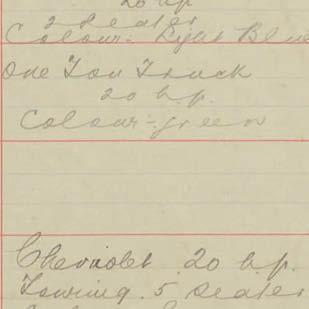 20 h.p
2 Seater
Colour:- Light Blue
One Ton Truck
20 h.p.
Colour:- green
Chevrolet 20 h.p.
Touring. 5 Seater